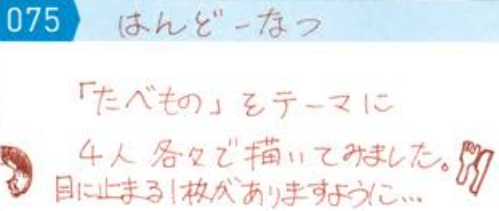 075 はんどーなつ
「たべもの」をテーマに
4人 各々で描いてみました。
目に止まる1枚がありますように…